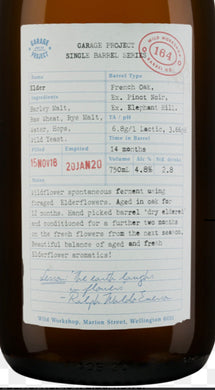 GARAGE PROJECT
GARAGE PROJECT
SINGLE BARREL SERIES
WILD WORKSHOP
164
BARREL NO.
Name
Barrel Type
Elder
French Oak,
Ingredients
Ex. Pinot Noir,
Barley Malt,
Ex. Elephant Hill.
Raw Wheat, Rye Malt,
TA / pH
Water, Hops.
6.8g/l Lactic, 3.66pH
Wild Yeast.
Time in Oak
14 months
15NOV18
20JAN20
Volume
Alc %
Std
750ml
4.8%
2.8
Wildflower spontaneous ferment using
foraged Elderflowers. Aged in oak for
12 months. Hand picked barrel "dry eldered"
and conditioned for a further two months
on the fresh flowers from the next season.
Beautiful balance of aged and fresh
Elderflower aromatics!
The earth laughs
in flowers
- Ralph Waldo Emerson
Wild Workshop, Marion Street, Wellington 6011